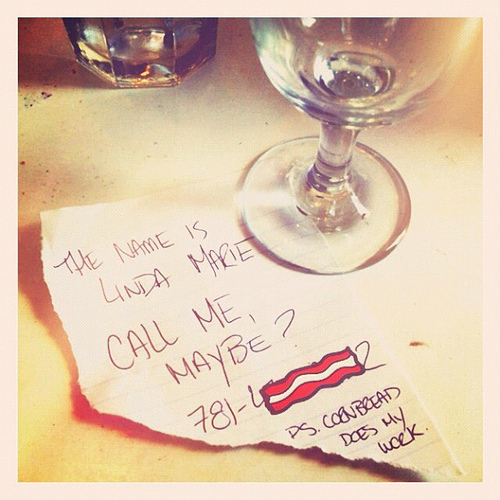 THE NAME IS
LINDA MARIE
CALL ME,
MAYBE?
781-4 2
PS. CORNBREAD
DOES MY
WORK.